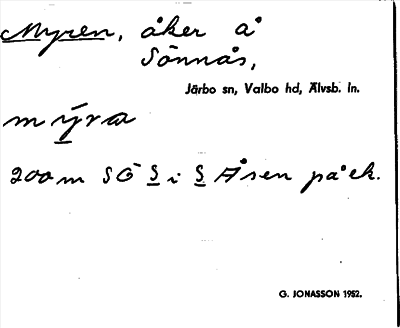 Myren, åker å
Sönnås,
Järbo sn, Valbo hd, Älvsb. ln.
mÿra
200 m SÖ S i S Åsen på ek.
G. JONASSON 1952.